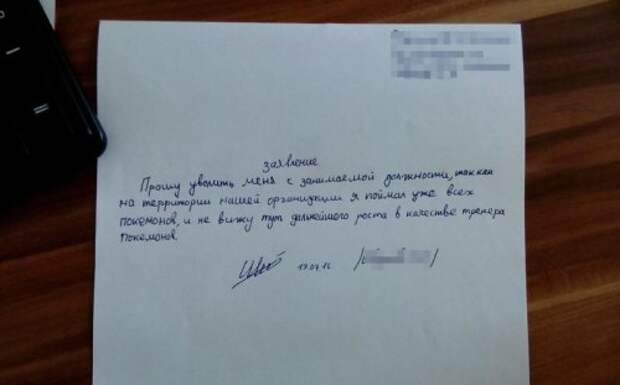 заявление
Прошу уволить меня с занимаемой должности, так как
на территории нашей организации я поймал уже всех
покемонов, и не вижу тут дальнейшего роста в качестве тренера
покемонов.
19.07.16